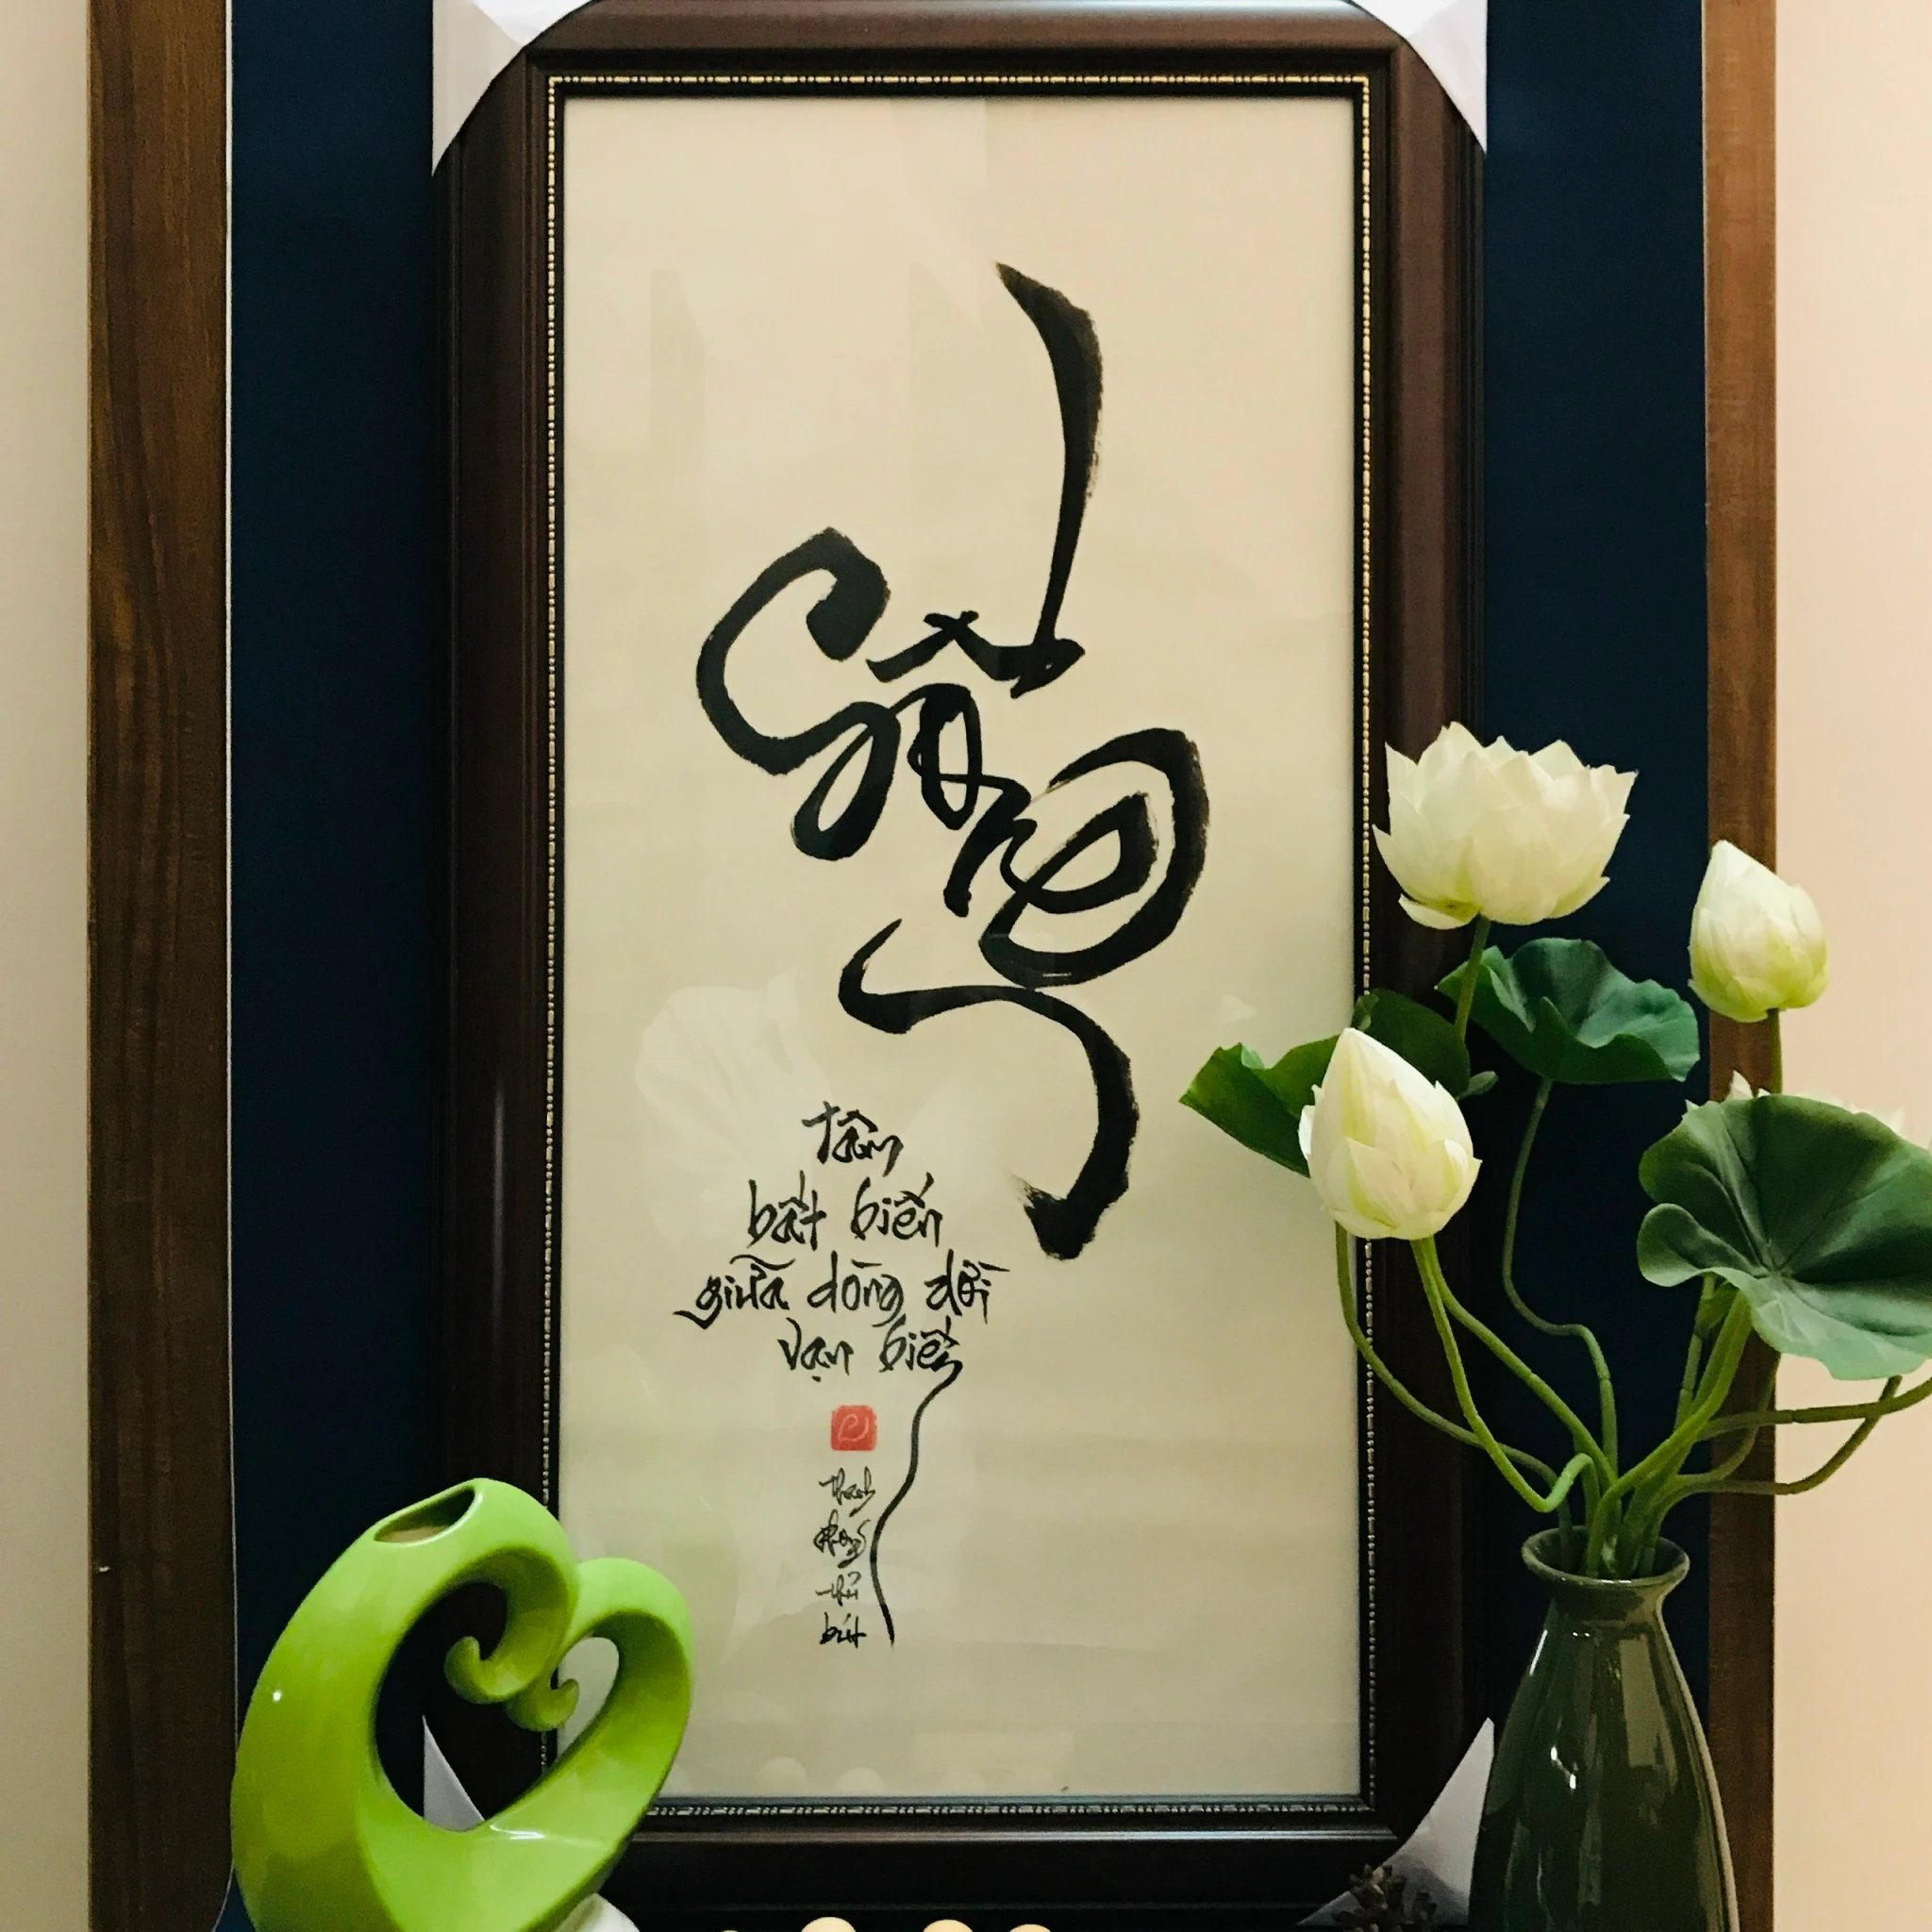 Sống
tâm
bất biến
giữa dòng đời
vạn biến
Thanh
Phong
thủ
bút